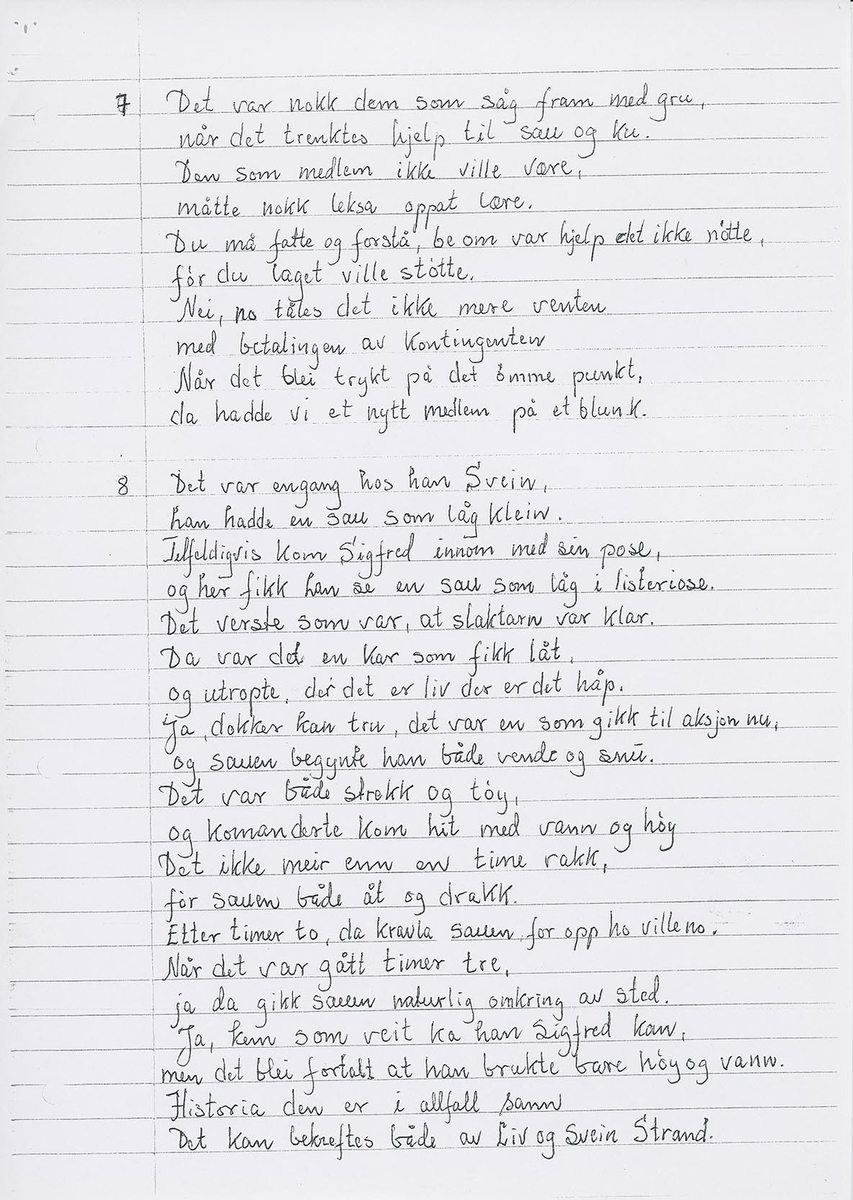 7 Det var nokk dem som såg fram med gru,
når det trenktes hjelp til sau og ku.
Den som medlem ikke ville være,
måtte nokk leksa oppat lære.
Du må fatte og forstå, be om vår hjelp det ikke nøtte,
før du laget ville støtte.
Nei, no tåles det ikke mere venten
med betalingen av kontingenten
Når det blei trykt på det ømme punkt,
da hadde vi et nytt medlem på et blunk.
8 Det var engang hos han Svein,
han hadde en sau som låg klein.
Tilfeldigvis kom Sigfred innom med sin pose,
og her fikk han se en sau som låg i listeriose.
Det verste som var, at slaktarn var klar.
Da var det en kar som fikk låt,
og utropte, der det er liv der er det håp.
Ja, dokker kan tru, det var en som gikk til aksjon nu,
og sauen begynte han både vende og snu.
Det var både strekk og tøy,
og komanderte kom hit med vann og høy
Det ikke meir enn en time rakk,
før sauen både åt og drakk.
Etter timer to, da kravla sauen, for opp ho ville no.
Når det var gått timer tre,
ja da gikk sauen naturlig omkring av sted.
Ja, kem som veit ka han Sigfred kan,
men det blei fortalt at han brukte bare høy og vann.
Historia den er i allfall sann
Det kan bekreftes både av Liv og Svein Strand.